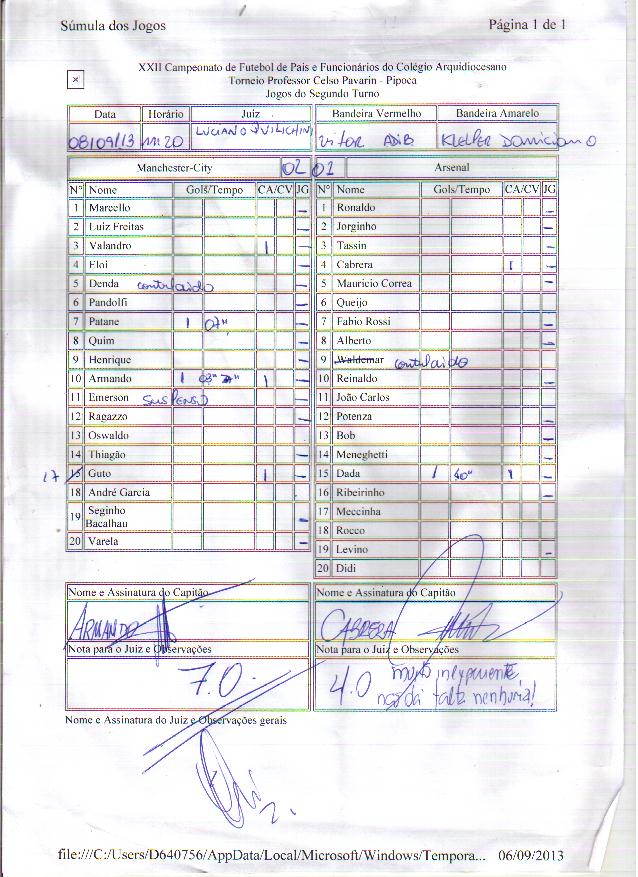 Súmula dos Jogos Página 1 de 1
XXII Campeonato de Futebol de Pais e Funcionários do Colégio Arquidiocesano
Torneio Professor Celso Pavarin - Pipoca
Jogos do Segundo Turno
Data Horário Juiz Bandeira Vermelho Bandeira Amarelo
08/09/13 20 LUCIANO Vitor ADIB
Manchester-City 02 01 Arsenal
Nº Nome Gols/Tempo CA/CV JG Nº Nome Gols/Tempo CA/CV JG
1 Marcello – 1 Ronaldo –
2 Luiz Freitas – 2 Jorginho –
3 Valandro 1 – 3 Tassin –
4 Eloi – 4 Cabrera 1 –
5 Denda contundido – 5 Mauricio Correa –
6 Pandolfi – 6 Queijo
7 Patane 1 07" – 7 Fabio Rossi –
8 Quim – 8 Alberto –
9 Henrique – 9 Waldemar contundido
10 Armando 1 03" 1 – 10 Reinaldo –
11 Emerson SUSPENSO – 11 João Carlos
12 Ragazzo – 12 Potenza –
13 Oswaldo 13 Bob –
14 Thiagão – 14 Meneghetti –
17 15 Guto 1 – 15 Dada 1 40" 1 –
18 André Garcia 16 Ribeirinho –
19 Seginho Bacalhau – 17 Meccinha
18 Rocco
20 Varela – 19 Levino –
20 Didi
Nome e Assinatura do Capitão Nome e Assinatura do Capitão
ARMANDO CABRERA
Nota para o Juiz e Observações Nota para o Juiz e Observações
7.0 4.0 muito inexperiente,
não dá falta nenhuma!
Nome e Assinatura do Juiz e Observações gerais
file:///C:/Users/D640756/AppData/Local/Microsoft/Windows/Tempora... 06/09/2013